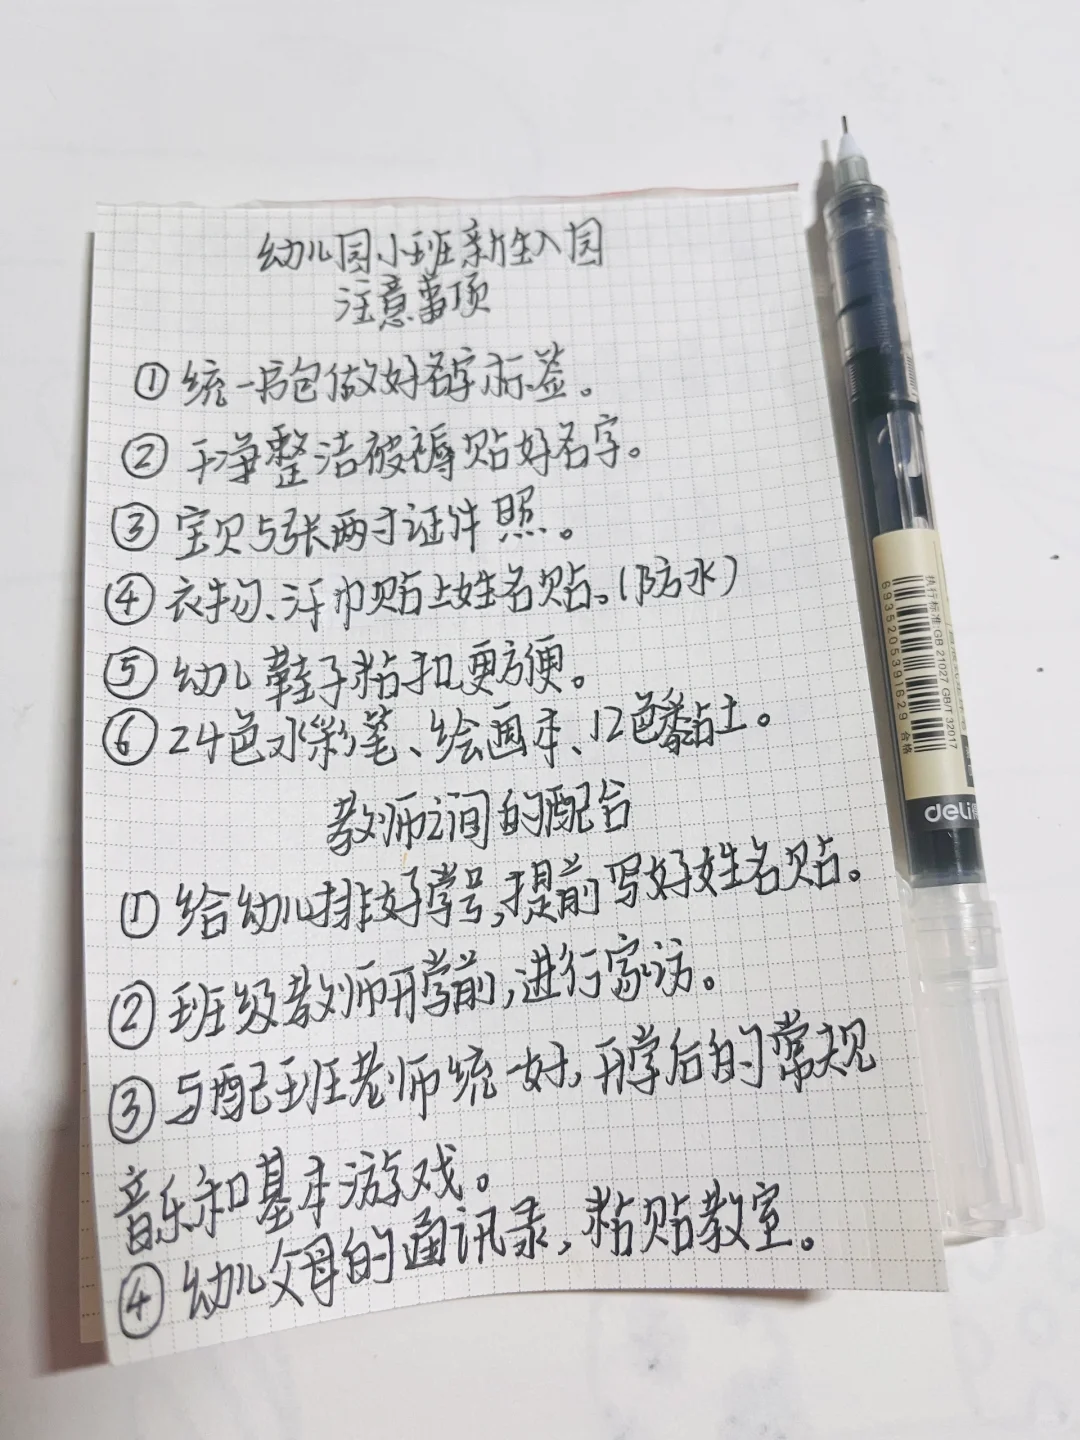 幼儿园小班新生入园
注意事项
①统一书包做好名字标签。
②干净整洁被褥贴好名字。
③宝贝5张两寸证件照。
④衣物、汗巾贴上姓名贴。(防水)
⑤幼儿鞋子粘扣更方便。
⑥24色水彩笔、绘画本、12色黏土。
教师之间的配合
①给幼儿排好学号,提前写好姓名贴。
②班级教师开学前,进行家访。
③与配班老师统一好,开学后的常规
音乐和基本游戏。
④幼儿父母的通讯录,粘贴教室。
执行标准 GB 21027 GB/T 32017
6935205391629 合格
deli